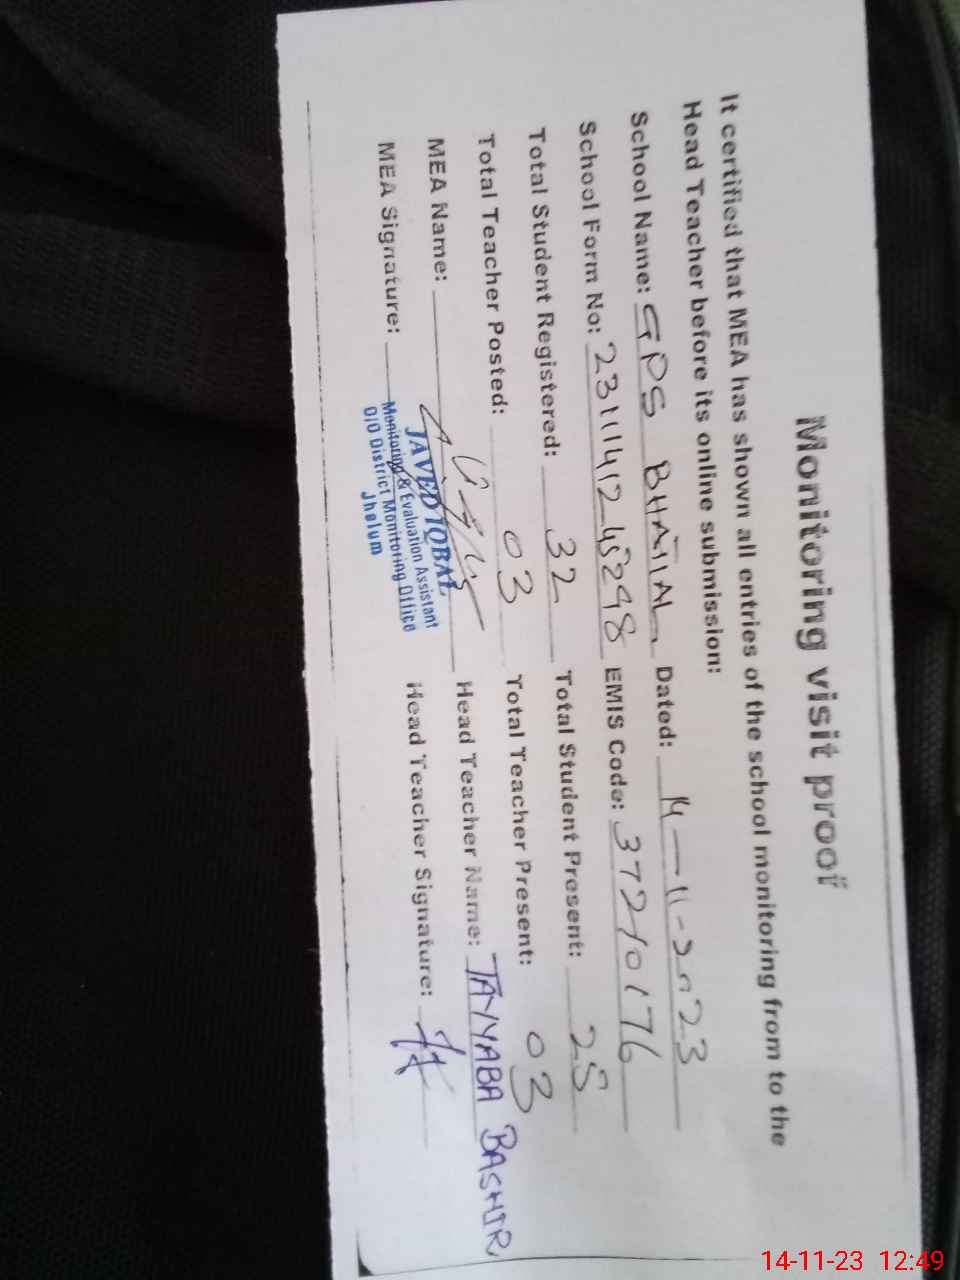 Monitoring visit proof
It certified that MEA has shown all entries of the school monitoring from to the
Head Teacher before its online submission:
School Name: GPS BHATIAL Dated: 14-11-2023
School Form No: EMIS Code: 37210176
Total Student Registered: 32 Total Student Present: 28
Total Teacher Posted: 03 Total Teacher Present: 03
MEA Name: Head Teacher Name: TAYYABA BASHIR
MEA Signature: Head Teacher Signature:
JAVED IQBAL
Monitoring & Evaluation Assistant
O/O District Monitoring Office
Jhelum
14-11-23 12:49